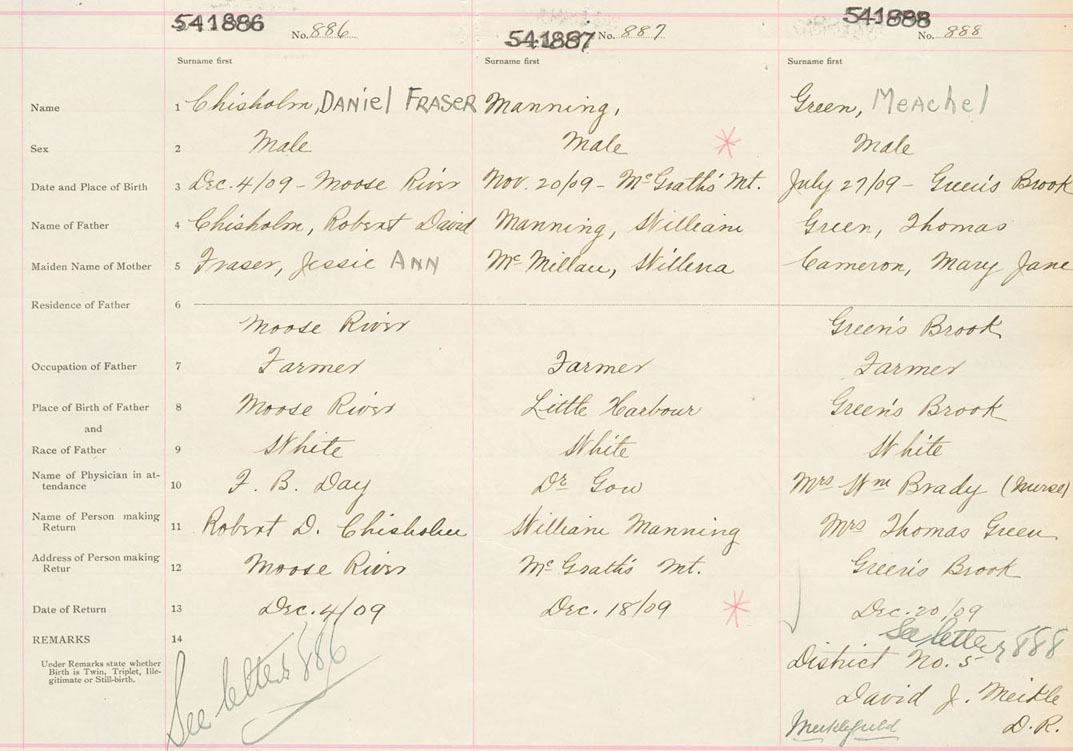 541886 No. 886 541887 No. 887 541888 No. 888
Surname first Surname first Surname first
Name 1 Chisholm, Daniel Fraser Manning, Green, Meachel
Sex 2 Male Male Male
Date and Place of Birth 3 Dec. 4/09 - Moose River Nov. 20/09 - McGrath's Mt. July 27/09 - Green's Brook
Name of Father 4 Chisholm, Robert David Manning, William Green, Thomas
Maiden Name of Mother 5 Fraser, Jessie Ann McMillan, Willena Cameron, Mary Jane
Residence of Father 6
Moose River Green's Brook
Occupation of Father 7 Farmer Farmer Farmer
Place of Birth of Father 8 Moose River Little Harbour Green's Brook
and
Race of Father 9 White White White
Name of Physician in at-
tendance 10 F. B. Day Dr Gow Mrs Wm Brady (Nurse)
Name of Person making
Return 11 Robert D. Chisholm William Manning Mrs Thomas Green
Address of Person making
Retur 12 Moose River McGrath's Mt. Green's Brook
Date of Return 13 Dec. 4/09 Dec. 18/09 Dec. 20/09
REMARKS 14
Under Remarks state whether
Birth is Twin, Triplet, Ille-
gitimate or Still-birth.
See letter 886
See letter 888
District No. 5
David J. Meikle
Meiklefield D.R.